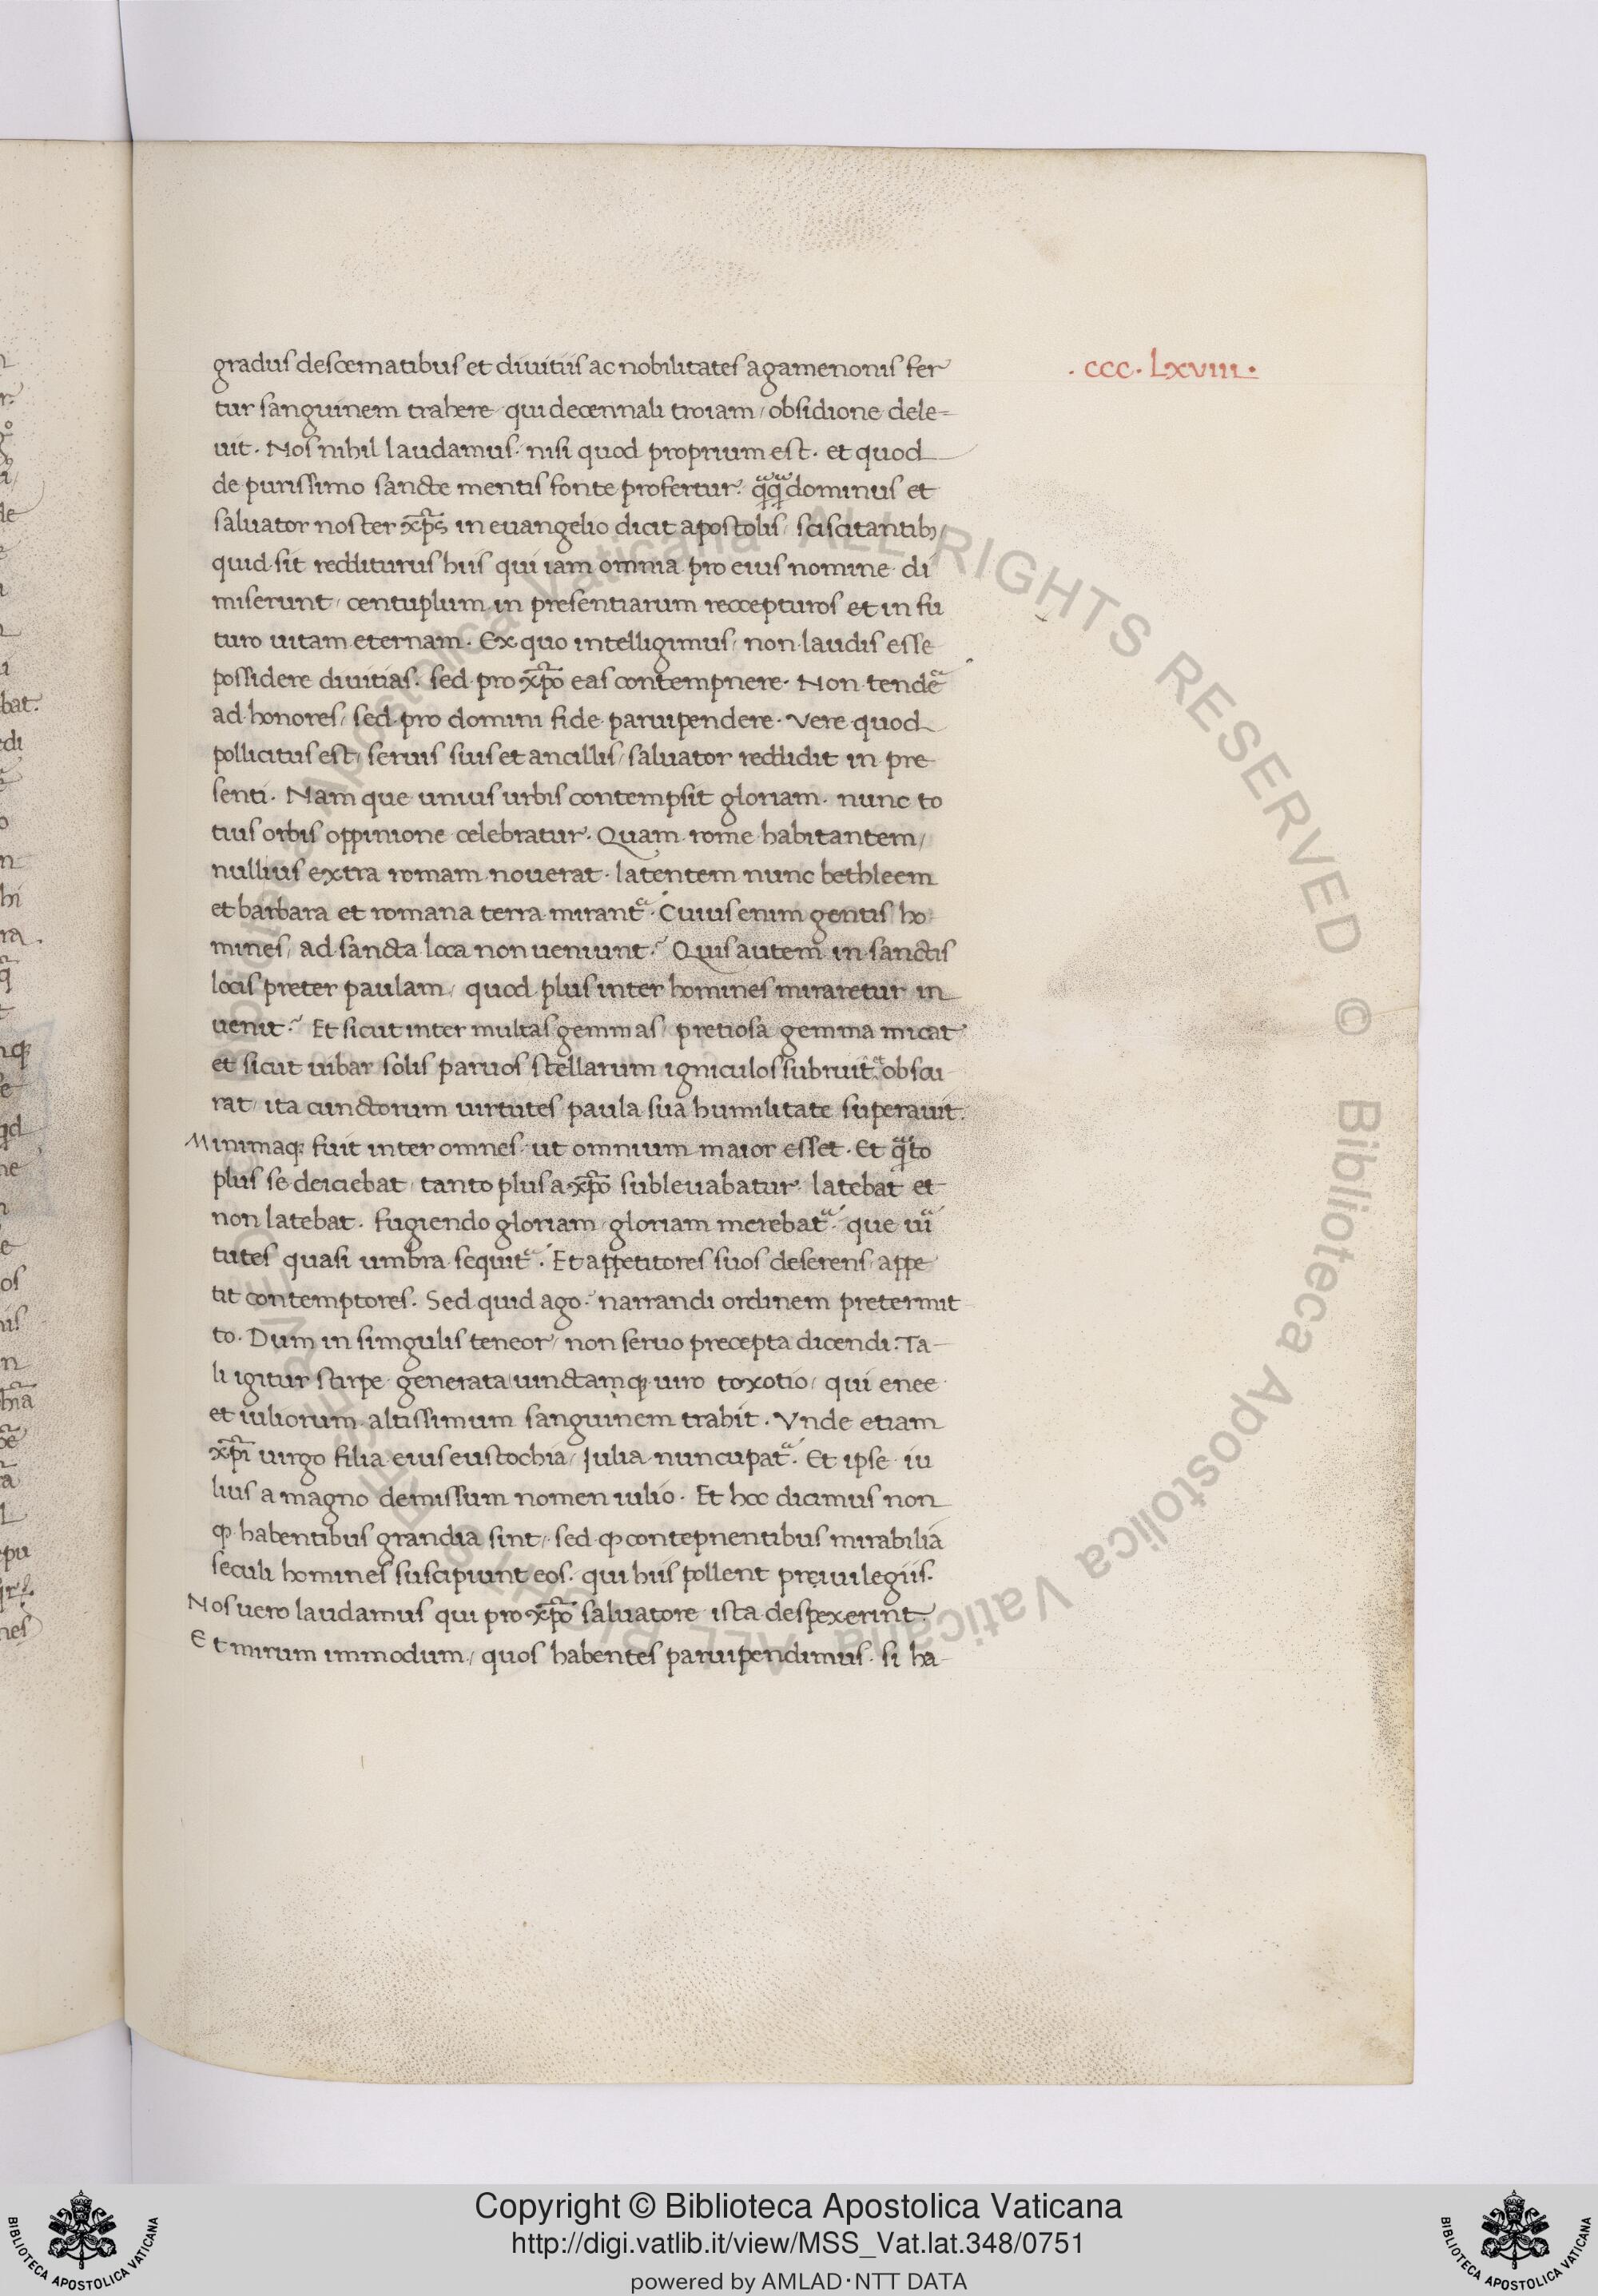 gradus descematibus et diuitiis ac nobilitates agamenonis fer
tur sanguinem trahere qui decennali troiam / obsidione dele=
uit. Nos nihil laudamus. nisi quod proprium est. et quod
de purissimo sancte mentis fonte profertur. dominus et
saluator noster xp̄s in euangelio dicit apostolis / sciscitantibꝫ
quid sit redditurus hiis qui iam omnia pro eius nomine di
miserunt / centuplum in presentiarum reccepturos et in fu
turo uitam eternam. Ex quo intelligimus / non laudis esse
possidere diuitias. sed pro xp̄o eas contempnere. Non tendeᷓ
ad honores / sed pro domini fide paruipendere. Vere quod
pollicitus est / seruis suis et ancillis / saluator reddidit in pre
senti. Nam que unius urbis contempsit gloriam. nunc to
tius orbis oppinione celebratur. Quam rome habitantem /
nullius extra romam nouerat. latentem nunc bethleem
et barbara et romana terra mirantᷓ. Cuius enim gentis ho
mines / ad sancta loca non ueniunt? Quis autem in sanctis
locis preter paulam / quod plus inter homines miraretur in
uenit? Et sicut inter multas gemmas / pretiosa gemma micat
et sicut iubar solis paruos stellarum igniculos subruit obscu
rat / ita cunctorum uirtutes / paula sua humilitate superauit.
Minimaqꝫ fuit inter omnes / ut omnium maior esset. Et qᷓto
plus se deiciebat / tanto plus a xp̄o subleuabatur. latebat et
non latebat. fugiendo gloriam / gloriam merebatᷓ. que uiᷓ
tutes quasi umbra sequitᷓ. Et appetitores suos deserens / appe
tit contemptores. Sed quid ago? narrandi ordinem pretermit
to. Dum in simgulis teneor / non seruo precepta dicendi. Ta-
li igitur stirpe generata uinctamqꝫ uiro toxotio / qui enee
et iuliorum altissimum sanguinem trahit. Vnde etiam
xp̄i uirgo filia eius eustochia / Julia nuncupatᷓ. Et ipse iu
lius a magno demissum nomen iulio. Et hoc dicimus non
ꝙ habentibus grandia sint / sed ꝙ contepnentibus mirabilia
seculi homines suscipiunt eos. qui hiis pollent preiuilegiis.
Nos uero laudamus qui pro xp̄o saluatore ista despexerint
Et mirum immodum / quos habentes paruipendimus. si ha-
. CCC. LXVIII.
Copyright © Biblioteca Apostolica Vaticana
http://digi.vatlib.it/view/MSS_Vat.lat.348/0751
powered by AMLAD·NTT DATA
BIBLIOTECA APOSTOLICA VATICANA
BIBLIOTECA APOSTOLICA VATICANA
ALL RIGHTS RESERVED © Biblioteca Apostolica Vaticana